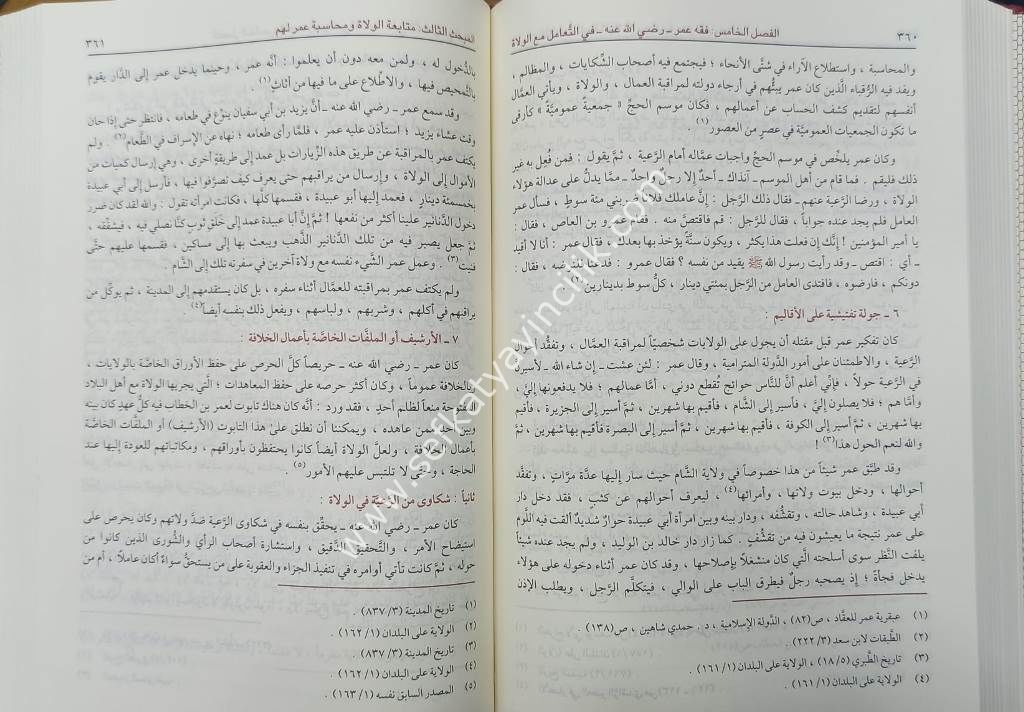 ٣٦٠ الفصل الخامس: فقه عمر ـ رضي الله عنه ـ في التَّعامل مع الولاة
والمحاسبة ، واستطلاع الآراء في شتَّى الأنحاء ؛ فيجتمع فيه أصحاب الشِّكايات ، والمظالم ،
ويفد فيه الرُّقباء الَّذين كان عمر يبثُّهم في أرجاء دولته لمراقبة العمال ، والولاة ، ويأتي العمَّال
أنفسهم لتقديم كشف الحساب عن أعمالهم ، فكان موسم الحجِّ « جمعيةً عموميَّة » كأرقى
ما تكون الجمعيات العموميَّة في عصرٍ من العصور(١) .
وكان عمر يلخِّص في موسم الحجِّ واجبات عمَّاله أمام الرَّعية ، ثمَّ يقول : فمن فُعِل به غير
ذلك فليقم . فما قام من أهل الموسم ـ آنذاك ـ أحدٌ إلا رجلٌ واحدٌ ـ ممَّا يدلُّ على عدالة هؤلاء
الولاة ، ورضا الرَّعية عنهم ـ فقال ذلك الرَّجل : إنَّ عاملك فلاناً ضربني مئة سوطٍ ، فسأل عمر
العامل فلم يجد عنده جواباً ، فقال للرَّجل : قم فاقتصَّ منه . فقام عمرو بن العاص ، فقال :
يا أمير المؤمنين ! إنَّك إن فعلت هذا يكثر ، ويكون سنَّةً يؤخذ بها بعدك ، فقال عمر : أنا لا أقيد
ـ أي : اقتص ـ وقد رأيت رسول الله ﷺ يقيد من نفسه ؟ فقال عمرو : فدعنا لنرضيه ، فقال :
دونكم ، فارضوه ، فافتدى العامل من الرَّجل بمئتي دينار ، كلُّ سوط بدينارين(٢) .
٦ ـ جولة تفتيشية على الأقاليم :
كان تفكير عمر قبل مقتله أن يجول على الولايات شخصيَّاً لمراقبة العمال ، وتفقُّد أحوال
الرَّعية ، والاطمئنان على أمور الدَّولة المترامية ، وقال عمر : لئن عشت ـ إن شاء الله ـ لأسيرنَّ
في الرَّعية حولاً ، فإنِّي أعلم أنَّ للنَّاس حوائج تُقطع دوني ، أمَّا عمالهم ؛ فلا يدفعونها إليَّ ،
وأمَّا هم ؛ فلا يصلون إليَّ ، فأسير إلى الشَّام ، فأقيم بها شهرين ، ثمَّ أسير إلى الجزيرة ، فأقيم
بها شهرين ، ثمَّ أسير إلى الكوفة ، فأقيم بها شهرين ، ثمَّ أسير إلى البصرة فأقيم بها شهرين ، ثمَّ
والله لنعم الحول هذا(٣)!
وقد طبَّق عمر شيئاً من هذا خصوصاً في ولاية الشَّام حيث سار إليها عدَّة مرَّاتٍ ، وتفقَّد
أحوالها ، ودخل بيوت ولاتها ، وأمرائها(٤) ، ليعرف أحوالهم عن كثبٍ ، فقد دخل دار
أبي عبيدة ، وشاهد حالته ، وتقشُّفه ، ودار بينه وبين امرأة أبي عبيدة حوارٌ شديدٌ ألقت فيه اللَّوم
على عمر نتيجة ما يعيشون فيه من تقشُّفٍ . كما زار دار خالد بن الوليد ، ولم يجد عنده شيئاً
يلفت النَّظر سوى أسلحته الَّتي كان منشغلاً بإصلاحها ، وقد كان عمر أثناء دخوله على هؤلاء
يدخل فجأةً ؛ إذ يصحبه رجلٌ فيطرق الباب على الوالي ، فيتكلَّم الرَّجل ، ويطلب الإذن
(١) عبقرية عمر للعقَّاد ، ص(٨٢) ، الدَّولة الإسلامية ، د. حمدي شاهين ، ص(١٣٨) .
(٢) الطَّبقات لابن سعد (٣/ ٢٢٢) .
(٣) تاريخ الطَّبري (٥/ ١٨) ، الولاية على البلدان (١/ ١٦١) .
(٤) الولاية على البلدان (١/ ١٦١) .
المبحث الثالث: متابعة الولاة ومحاسبة عمر لهم ٣٦١
بالدُّخول له ، ولمن معه دون أن يعلموا : أنَّه عمر ، وحينما يدخل عمر إلى الدَّار يقوم
بالتَّمحيص فيها ، والاطِّلاع على ما فيها من أثاثٍ(١) .
وقد سمع عمر ـ رضي الله عنه ـ أنَّ يزيد بن أبي سفيان ينوِّع في طعامه ، فانتظر حتى إذا حان
وقت عشاء يزيد ؛ استأذن عليه عمر ، فلمَّا رأى طعامه ؛ نهاه عن الإسراف في الطَّعام(٢) . ولم
يكتف عمر بالمراقبة عن طريق هذه الزِّيارات بل عمد إلى طريقةٍ أخرى ، وهي إرسال كميات من
الأموال إلى الولاة ، وإرسال من يراقبهم حتى يعرف كيف تصرَّفوا فيها ، فأرسل إلى أبي عبيدة
بخمسمئة دينارٍ ، فعمد إليها أبو عبيدة ، فقسمها كلَّها ، فكانت امرأته تقول : والله لقد كان ضرر
دخول الدَّنانير علينا أكثر من نفعها ! ثمَّ إنَّ أبا عبيدة عمد إلى خَلَق ثوبٍ كنَّا نصلي فيه ، فشقَّقه ،
ثمَّ جعل يصير فيه من تلك الدَّنانير الذَّهب ويبعث بها إلى مساكين ، فقسمها عليهم حتَّى
فنيت(٣) . وعمل عمر الشَّيء نفسه مع ولاة آخرين في سفرته تلك إلى الشَّام .
ولم يكتف عمر بمراقبته للعمَّال أثناء سفره ، بل كان يستقدمهم إلى المدينة ، ثم يوكل من
يراقبهم في أكلهم ، وشربهم ، ولباسهم ، ويفعل ذلك بنفسه أيضاً(٤) .
٧ ـ الأرشيف أو الملفَّات الخاصَّة بأعمال الخلافة :
كان عمر ـ رضي الله عنه ـ حريصاً كلَّ الحرص على حفظ الأوراق الخاصَّة بالولايات ،
وبالخلافة عموماً ، وكان أكثر حرصه على حفظ المعاهدات ؛ الَّتي يجريها الولاة مع أهل البلاد
المفتوحة منعاً لظلم أحدٍ ، فقد ورد : أنَّه كان هناك تابوت لعمر بن الخطاب فيه كلُّ عهدٍ كان بينه
وبين أحدٍ ممن عاهده ، ويمكننا أن نطلق على هذا التابوت (الأرشيف) أو الملفَّات الخاصَّة
بأعمال الخلافة ، ولعلَّ الولاة أيضاً كانوا يحتفظون بأوراقهم ، ومكاتباتهم للعودة إليها عند
الحاجة ، وحتى لا تلتبس عليهم الأمور(٥) .
ثانياً : شكاوى من الرَّعيَّة في الولاة :
كان عمر ـ رضي الله عنه ـ يحقِّق بنفسه في شكاوى الرَّعية ضدَّ ولاتهم وكان يحرص على
استيضاح الأمر ، والتَّحقيق الدَّقيق ، واستشارة أصحاب الرأي والشُّورى الَّذين كانوا من
حوله ، ثمَّ كانت تأتي أوامره في تنفيذ الجزاء والعقوبة على من يستحقُّ سواءٌ أكان عاملاً ، أم من
(١) تاريخ المدينة (٣/ ٨٣٧) .
(٢) الولاية على البلدان (١/ ١٦٢) .
(٣) تاريخ المدينة (٣/ ٨٣٧) .
(٤) الولاية على البلدان (١/ ١٦٢) .
(٥) المصدر السابق نفسه (١/ ١٦٣) .
www.serkatyayincilik.com